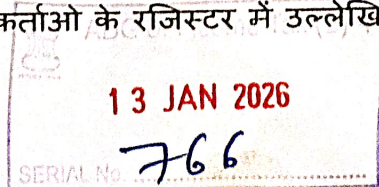 कर्ताओ के रजिस्टर में उल्लेखि
13 JAN 2026
766
SERIAL No.